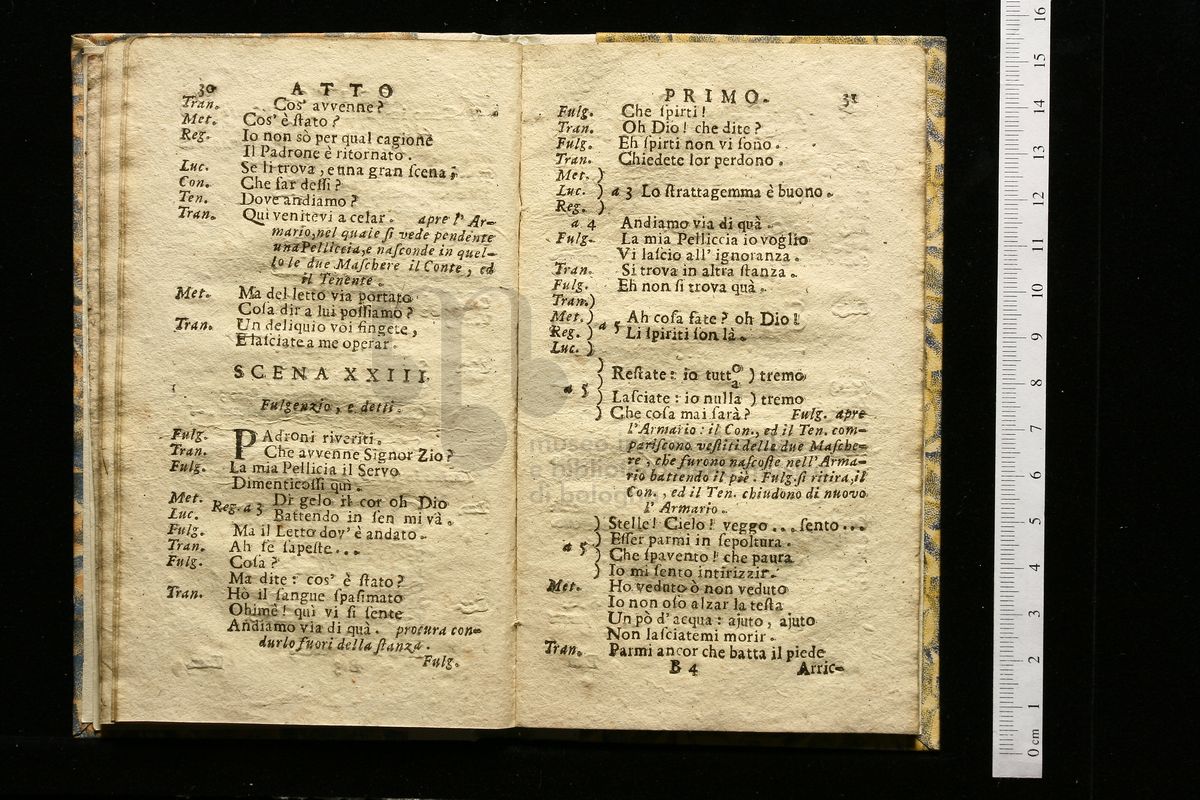 30 ATTO
Tran. Cos' avvenne?
Met. Cos' è ſtato?
Reg. Io non sò per qual cagione
Il Padrone è ritornato.
Luc. Se li trova, e una gran ſcena;
Con. Che far deſſi?
Ten. Dove andiamo?
Tran. Qui venitevi a celar. apre l' Ar-
mario, nel quale ſi vede pendente
una Pelliccia, e naſconde in quel-
lo le due Maſchere il Conte, ed
il Tenente.
Met. Ma del letto via portato
Coſa dir a lui poſſiamo?
Tran. Un deliquio voi fingete,
E laſciate a me operar.
SCENA XXIII.
Fulgenzio, e detti.
Fulg. PAdroni riveriti.
Tran. Che avvenne Signor Zio?
Fulg. La mia Pellicia il Servo
Dimenticoſſi quì.
Met. Di gelo il cor oh Dio
Luc. Reg. a 3 Battendo in ſen mi và.
Fulg. Ma il Letto dov' è andato.
Tran. Ah ſe ſapeſte...
Fulg. Coſa?
Ma dite: cos' è ſtato?
Tran. Hò il ſangue ſpaſimato
Ohimè! quì vi ſi ſente
Andiamo via di quà. procura con-
durlo fuori della ſtanza.
Fulg.
PRIMO. 31
Fulg. Che ſpirti!
Tran. Oh Dio! che dite?
Fulg. Eh ſpirti non vi ſono.
Tran. Chiedete lor perdono.
Met. )
Luc. ) a 3 Lo ſtrattagemma è buono.
Reg. )
a 4 Andiamo via di quà.
Fulg. La mia Pelliccia io voglio
Vi laſcio all' ignoranza.
Tran. Si trova in altra ſtanza.
Fulg. Eh non ſi trova quà.
Tran.)
Met. ) a 5 Ah coſa fate? oh Dio!
Reg. ) Li ſpiriti ſon là.
Luc. )
) Reſtate: io tutt o a ) tremo
a 5 ) Laſciate: io nulla ) tremo
) Che coſa mai ſarà? Fulg. apre
l'Armario: il Con., ed il Ten. com-
pariſcono veſtiti delle due Maſche-
re, che furono naſcoſte nell' Arma-
rio battendo il piè. Fulg. ſi ritira, il
Con., ed il Ten. chiudono di nuovo
l' Armario.
) Stelle! Cielo! veggo... ſento...
a 5 ) Eſſer parmi in ſepoltura.
) Che ſpavento! che paura
) Io mi ſento intirizzir.
Met. Ho veduto ò non veduto
Io non oſo alzar la teſta
Un pò d' acqua: ajuto, ajuto
Non laſciatemi morir.
Tran. Parmi ancor che batta il piede
B 4 Arric-
museo
e biblio
di bolo
0 cm 1 2 3 4 5 6 7 8 9 10 11 12 13 14 15 16